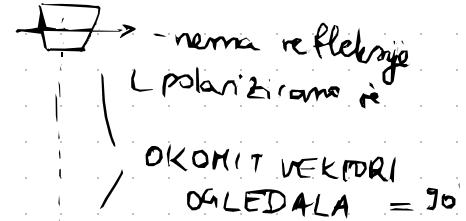 - nema refleksije
L polarizirano je
OKOMIT VEKTORI
OGLEDALA = 90